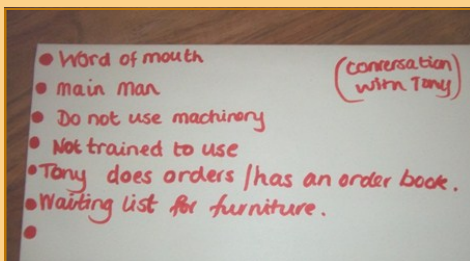 • Word of mouth
(conversation
with Tony)
• main man
• Do not use machinery
• Not trained to use
• Tony does orders / has an order book.
• Waiting list for furniture.
•